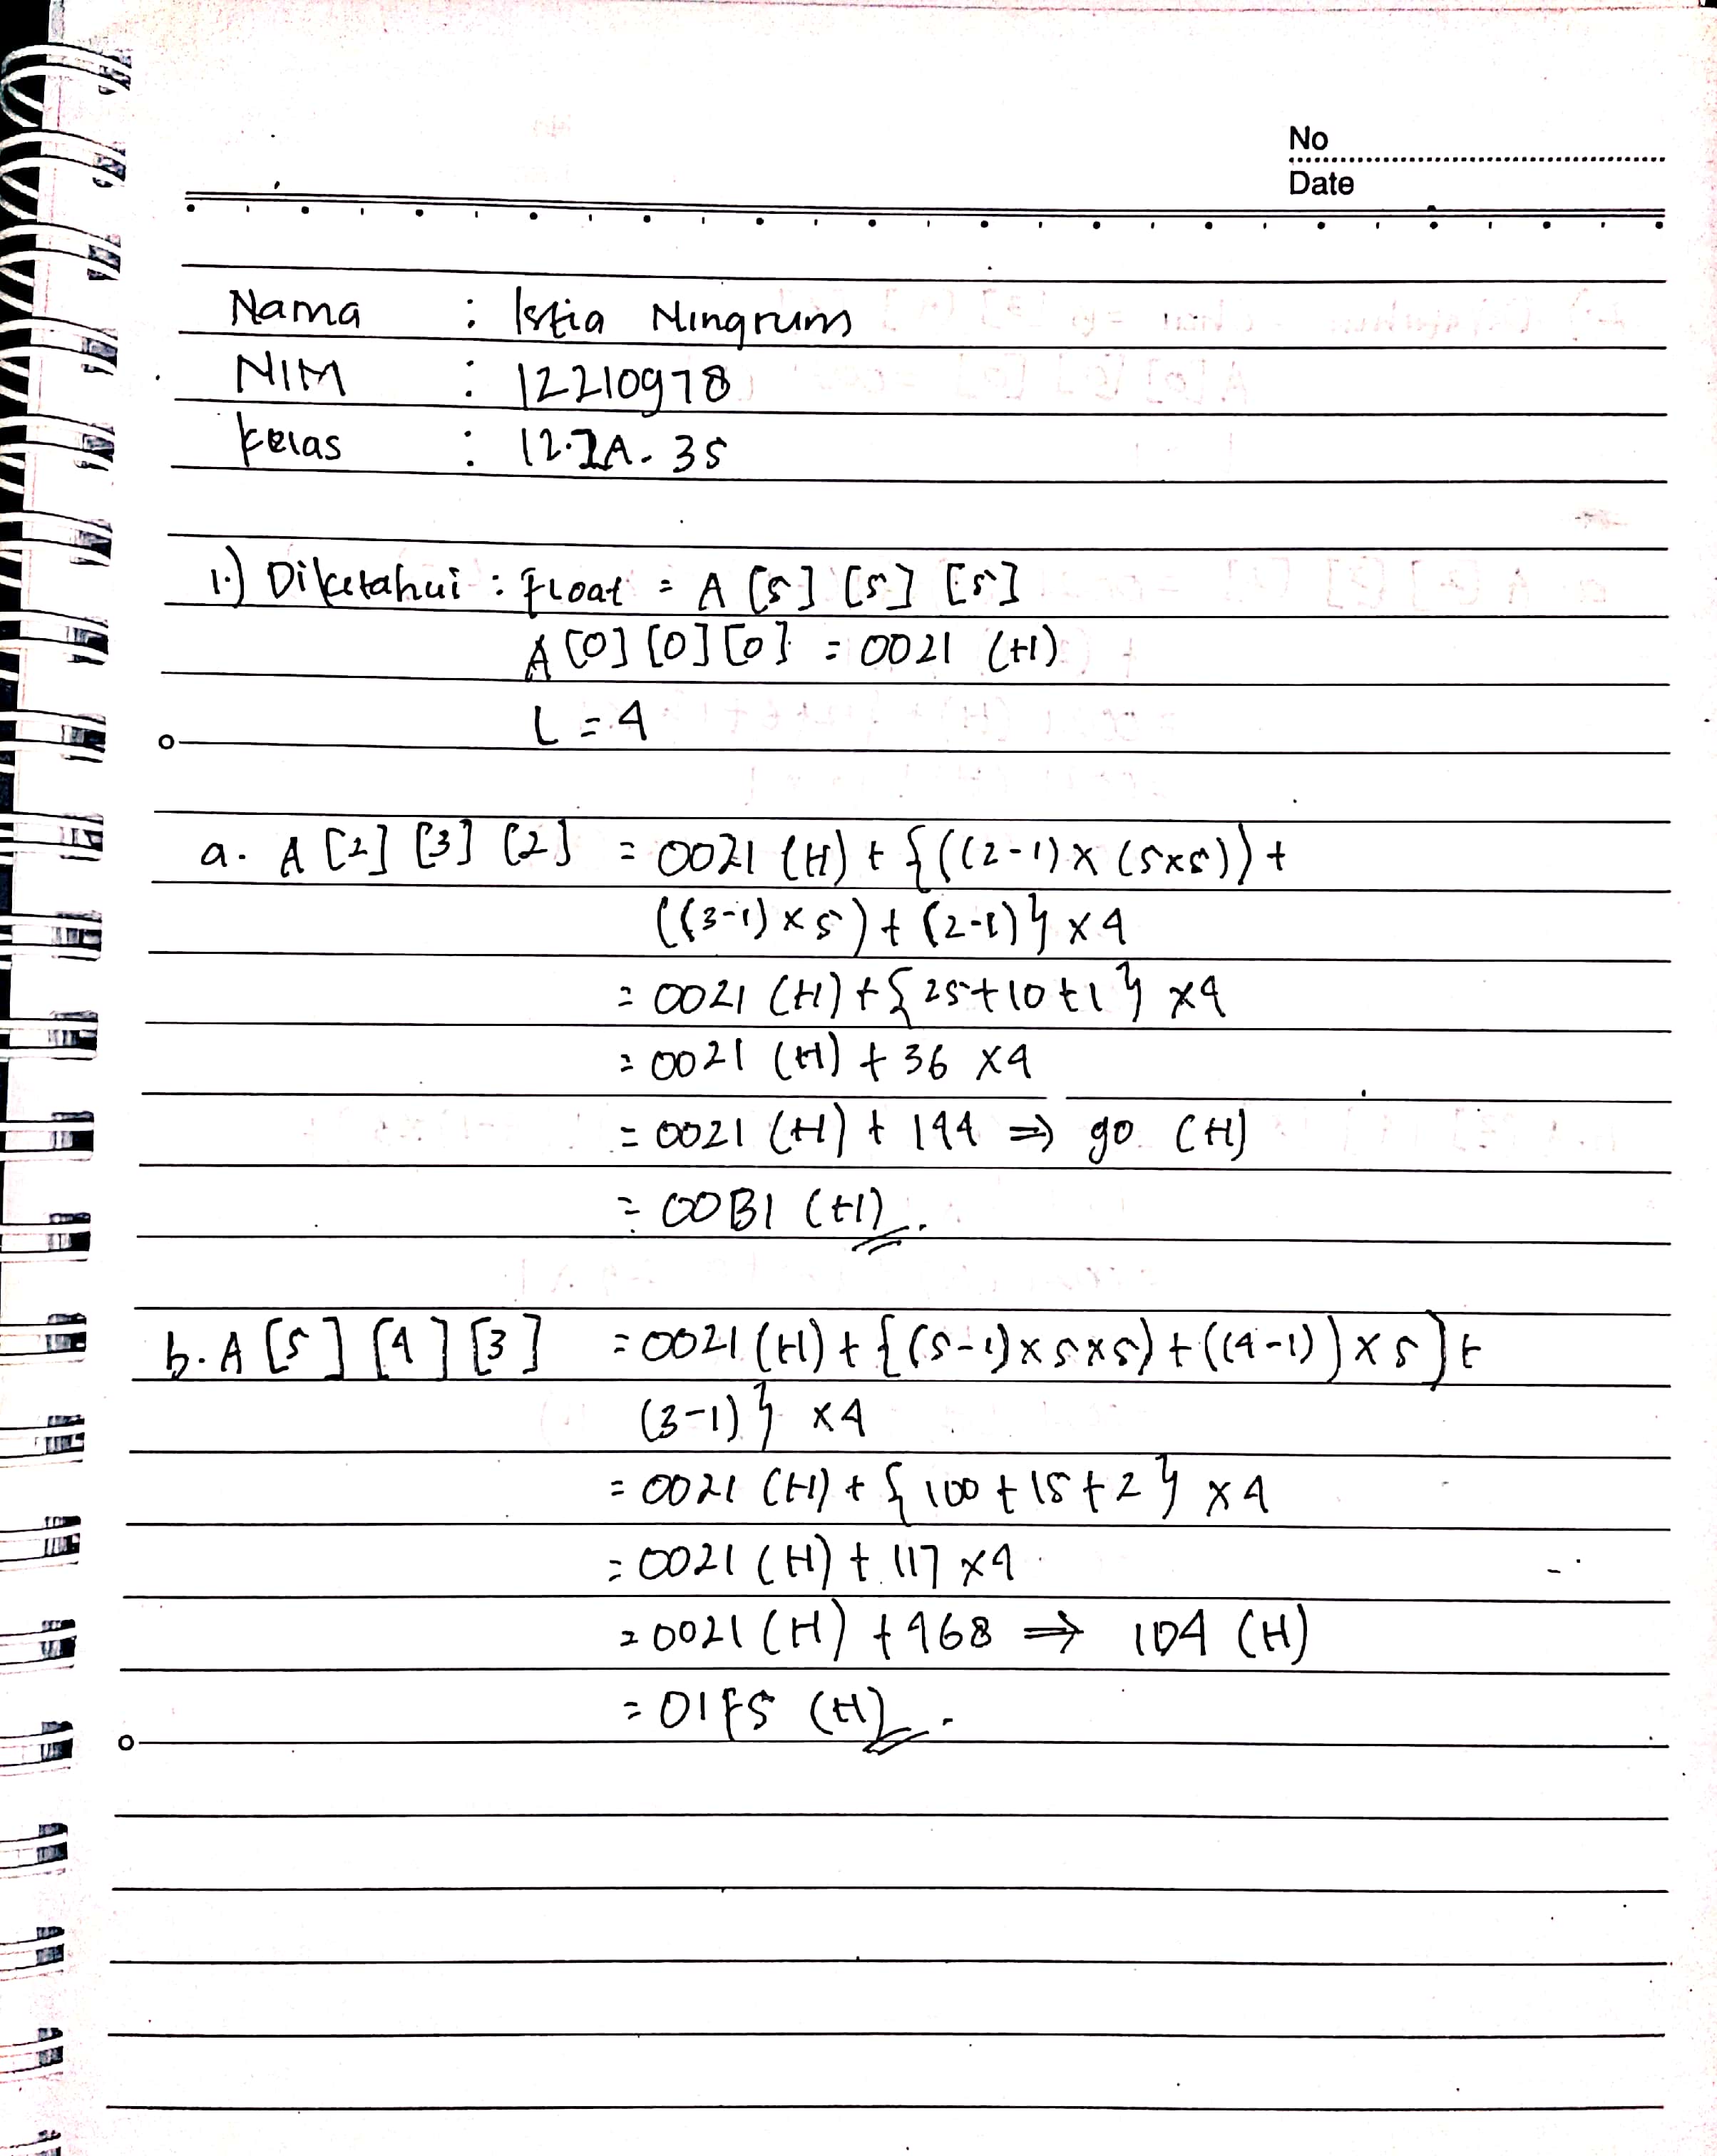 No
Date
Nama : Istia Ningrum
NIM : 12210978
Kelas : 12.2A.35
1.) Diketahui : Float = A [5] [5] [5]
A [0] [0] [0] = 0021 (H)
L = 4
a. A [2] [3] [2] = 0021 (H) + {((2-1) x (5x5)) +
((3-1) x 5) + (2-1)} x 4
= 0021 (H) + {25+10+1} x4
= 0021 (H) + 36 x4
= 0021 (H) + 144 ⇒ 90 (H)
= 00B1 (H).
b. A [5] [4] [3] = 0021 (H) + {(5-1) x 5x5) + ((4-1)) x 5] +
(3-1)} x4
= 0021 (H) + {100 + 15 + 2} x4
= 0021 (H) + 117 x4
= 0021 (H) + 468 ⇒ 1D4 (H)
= 01F5 (H).